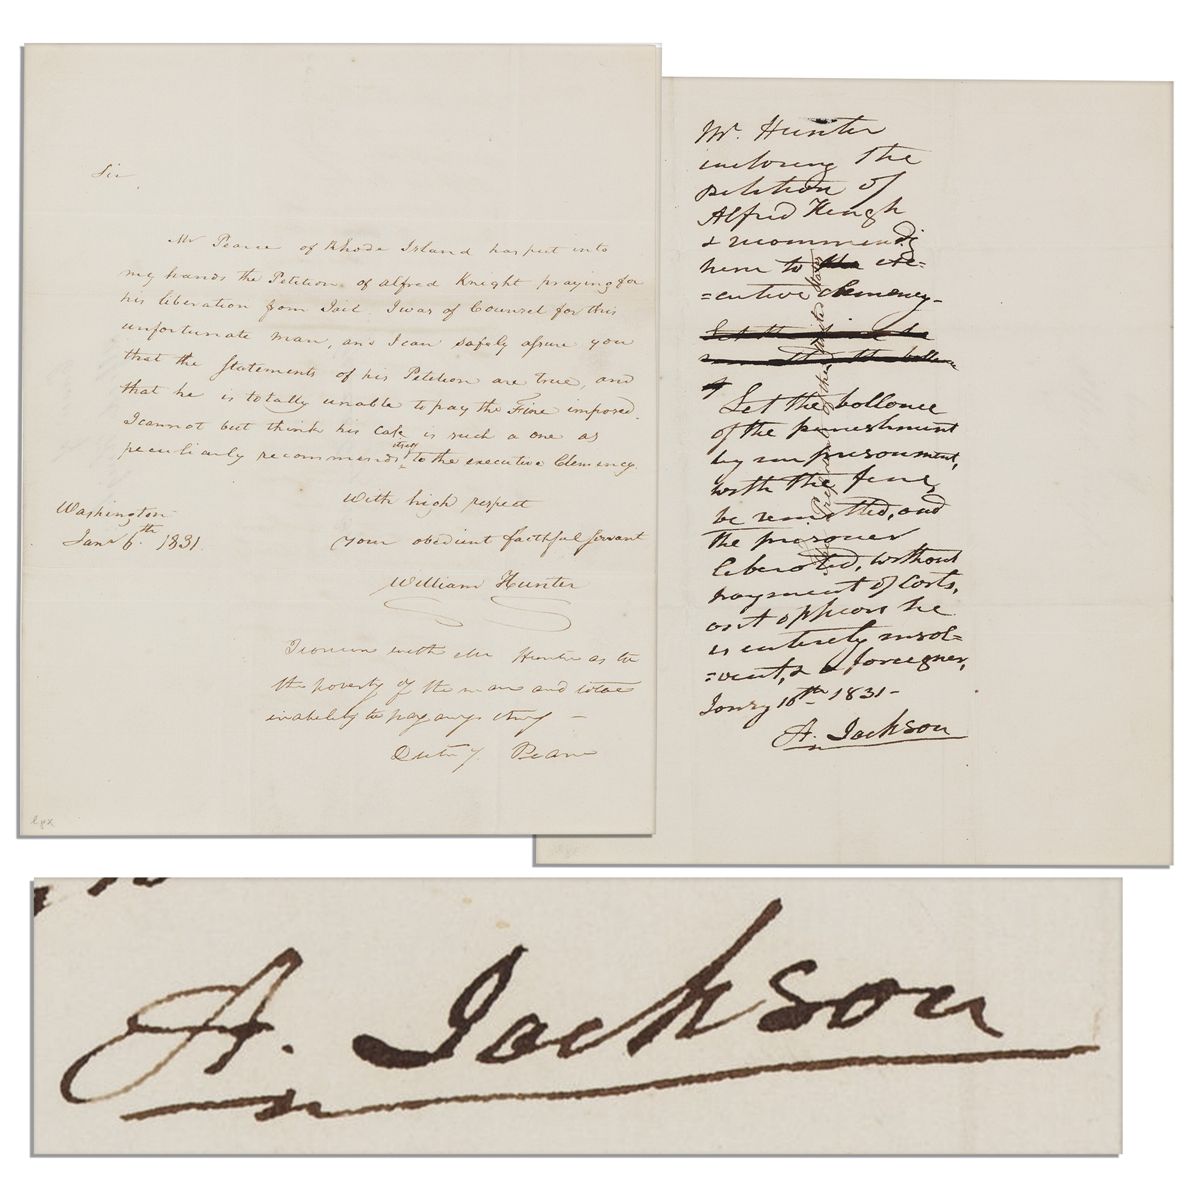 Sir,
Mr Pearce of Rhode Island has put into
my hands the Petition of Alfred Knight praying for
his liberation from Jail. I was of Counsel for this
unfortunate man, and I can safely assure you
that the Statements of his Petition are true, and
that he is totally unable to pay the Fine imposed.
I cannot but think his Case is such a one as
peculiarly recommends itself to the executive Clemency.
With high respect
Washington
Your obedient faithful Servant
Jany 6th 1831.
William Hunter
I concur with Mr Hunter as to
the poverty of the man and total
inability to pay any thing —
Dutee J. Pearce
Mr. Hunter
inclosing the
petition of
Alfred
& recommending
him to the exe-
=cutive clemency-
Let the
of
Let the ballance
of the punishment
by imprisonment,
with the fine,
be remitted, and
the prisoner
liberated, without
payment of Costs,
as it appears he
is entirely insol=
=vent, & a foreigner,
Jany 10th 1831-
A. Jackson
President of the United States
A. Jackson